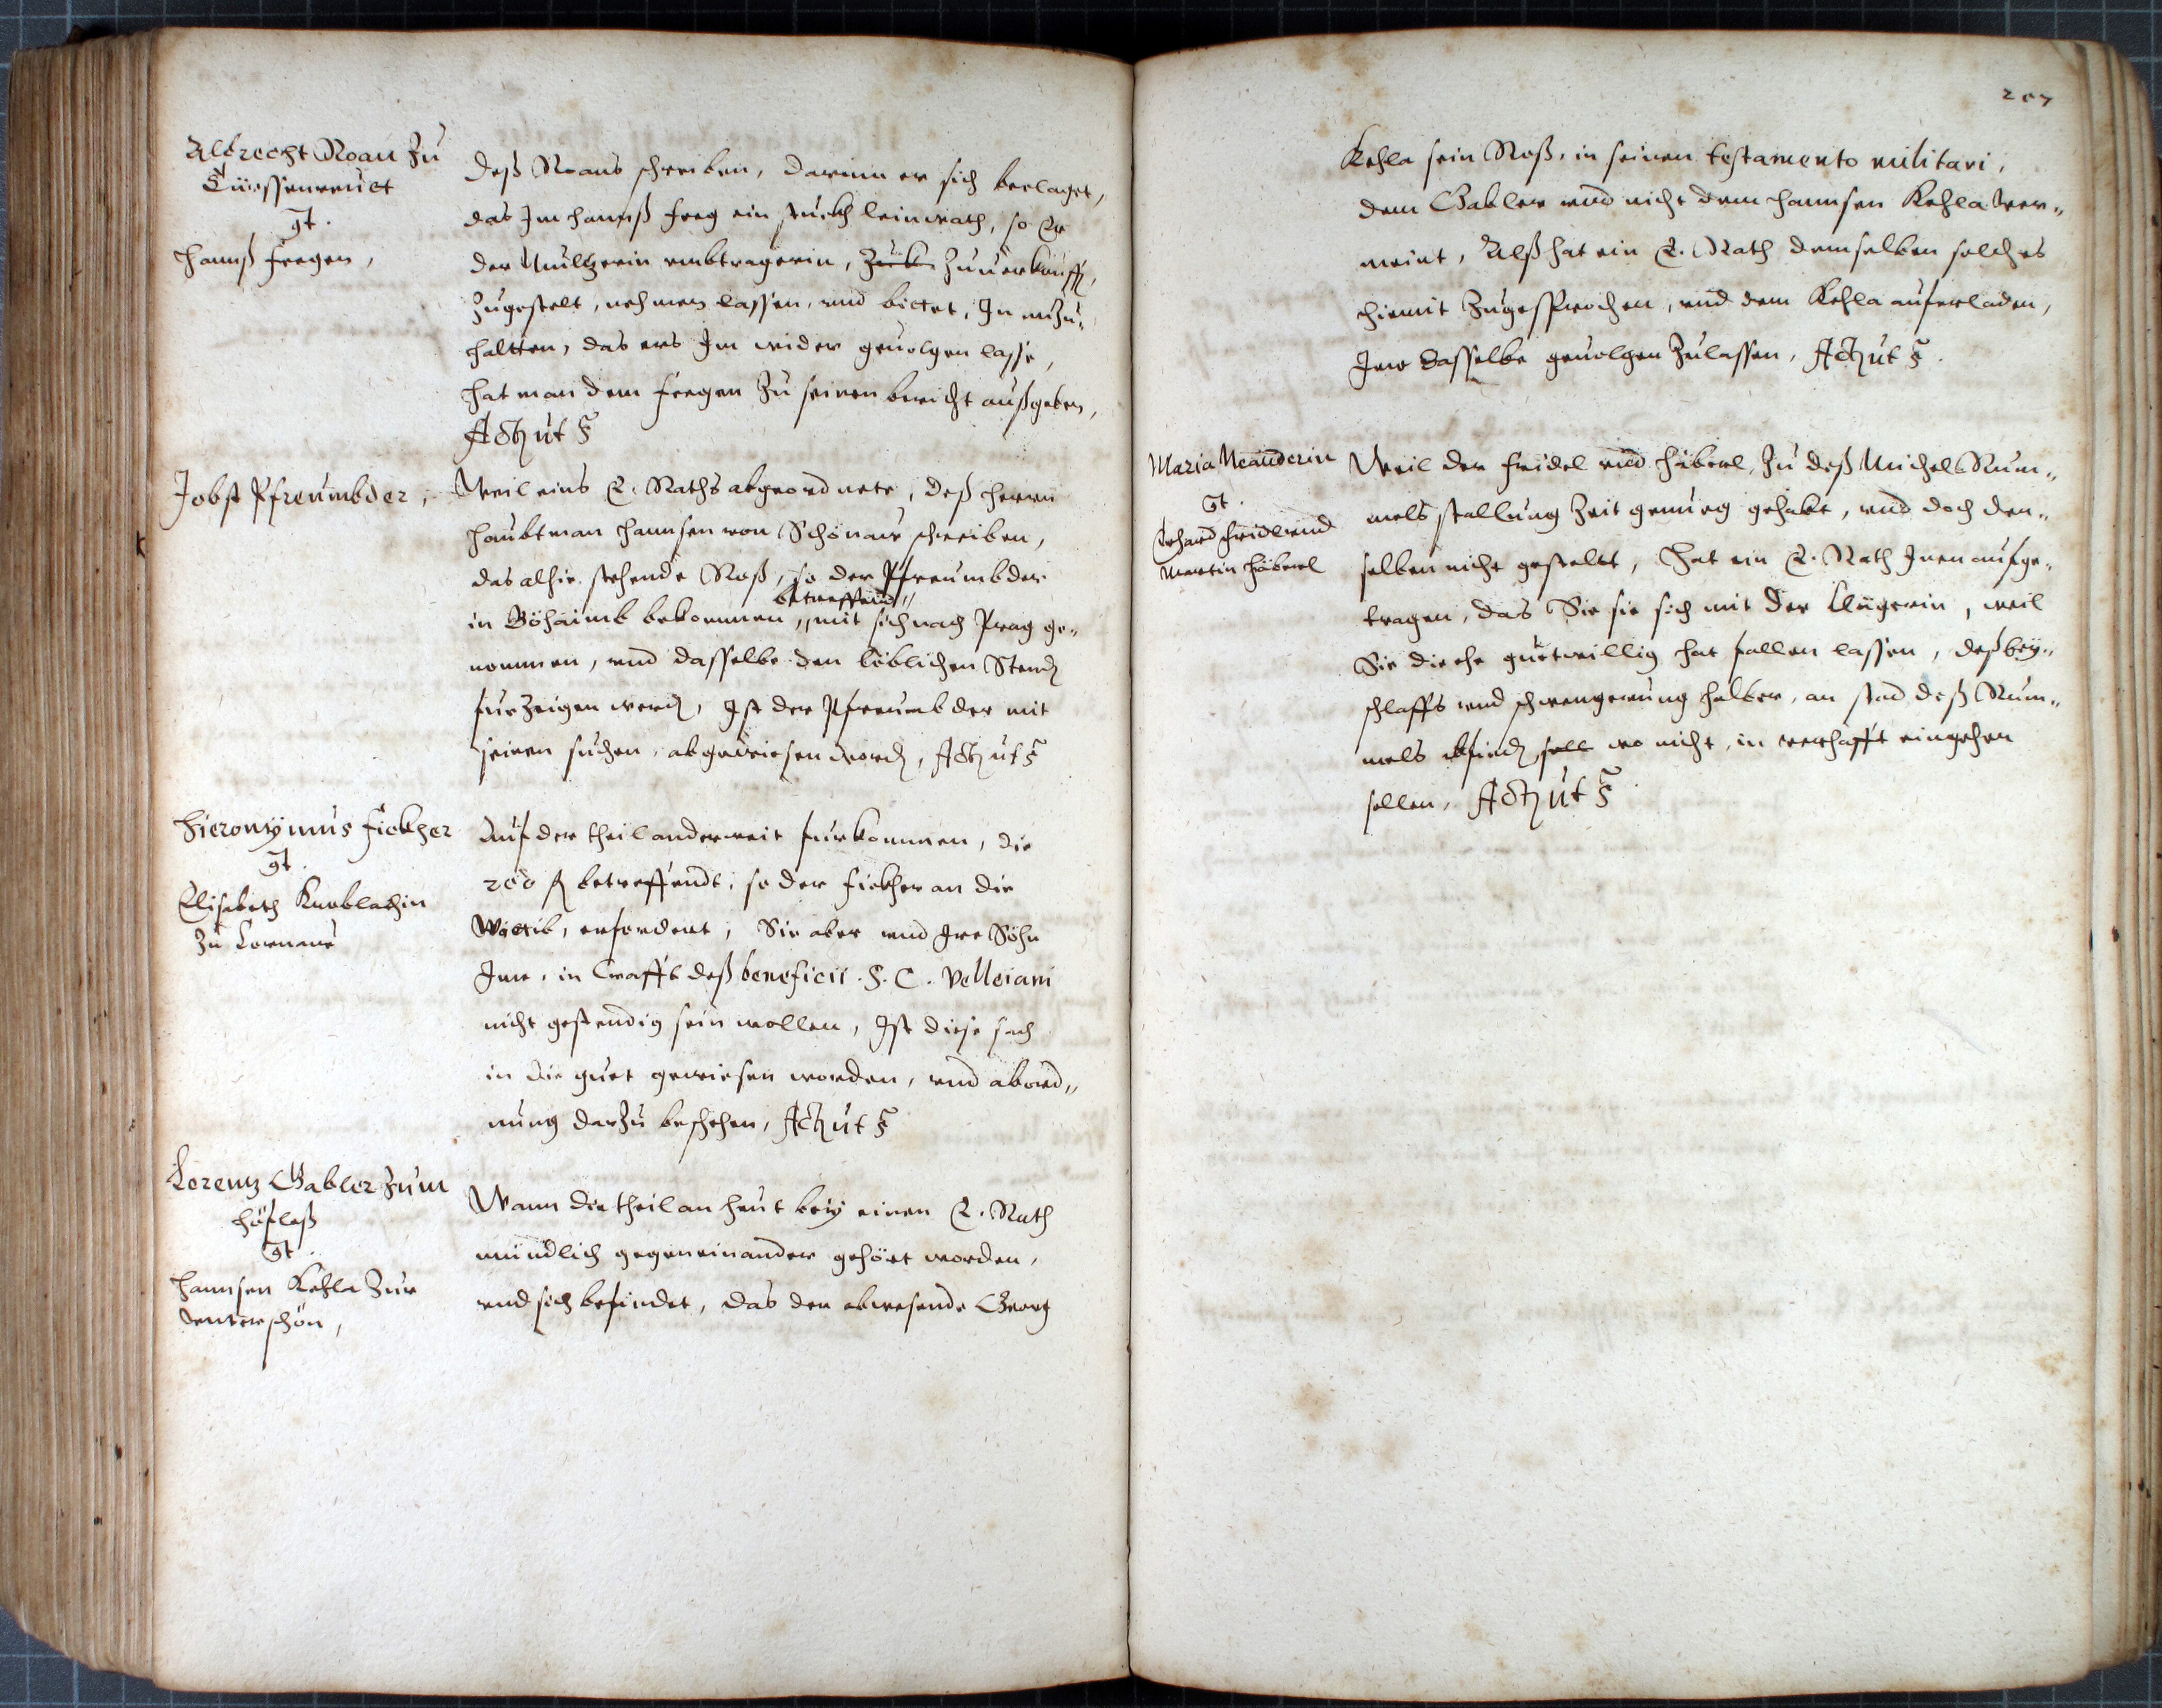 Albrecht Noan zu
Türssenreuet
gt.
Hannß Fregen,
Deß Noans schreiben, darinn er sich beclaget,
das Im Hannß Freg ein stuckh leinwath, so Er
der Multzerin umbtragerin, zuuerkauff,
zugestelt, nehmen lassen, und bittet, In anzu-
haltten, das ers Im wider geuolgen lasse,
hat man dem Fregen zu seinen bericht außgeben,
Act ut s
Jobst Pfreumbder,
Weil eins E. Raths abgeordnete, deß herrn
Haubtman Hannsen von Schönaue schreiben,
das alhie stehende Roß, so der Pfreumbder
betreffend
in Böhaimb bekommen, mit sich nach Prag ge-
nommen, und dasselbe den löblichen Stend
furzeigen werd, Ist der Pfreumbder mit
seinen suchen abgewiesen word, Act ut s
Hieronymus Fickher
gt.
Elisabeth Knoblachin
zu Lornaue
Auf der theil anderweit furkommen, die
200 fl betreffendt, so der Fickher an die
Wittib, erfordert, Sie aber und Ire Söhn
Ime, in Crafft deß beneficii S. C. Velleiani
nicht gestendig sein wollen, Ist diese sach
in die guet gewiesen worden, und abord-
nung darzu beschehen, Act ut s
Lorentz Gabler zum
Höfleß
gt.
Hannsen Kehla zur
Unterschön,
Wann die theil an heut bey einen E. Rath
mündlich gegeneinander gehört worden,
und sich befindet, das der abwesende Georg
207
Kehla sein Roß, in seinen testamento militari,
dem Gabler und nicht dem Hannsen Kehla ver-
meint, Alß hat ein E. Rath demselben solches
hiemit zugesprochen, und dem Kehla auferladen,
Ime dasselbe geuolgen zulassen, Act ut s.
Maria Neanderin
gt.
Erhard Fridl und
Martin Häberl
Weil der Fridel und Häberl, zu deß Michel Rum-
mels stallung Zeit genueg gehabt, und doch den-
selben nicht gestelt, Hat ein E. Rath Inen aufge-
tragen, das Sie sie sich mit der Clägerin, weil
Sie die ehe guetwillig hat fallen lassen, deß bey-
schlaffs und schwengerung halber, an stad deß Rum-
mels abfind, soll wo nicht, in verhafft eingehen
sollen, Act ut s